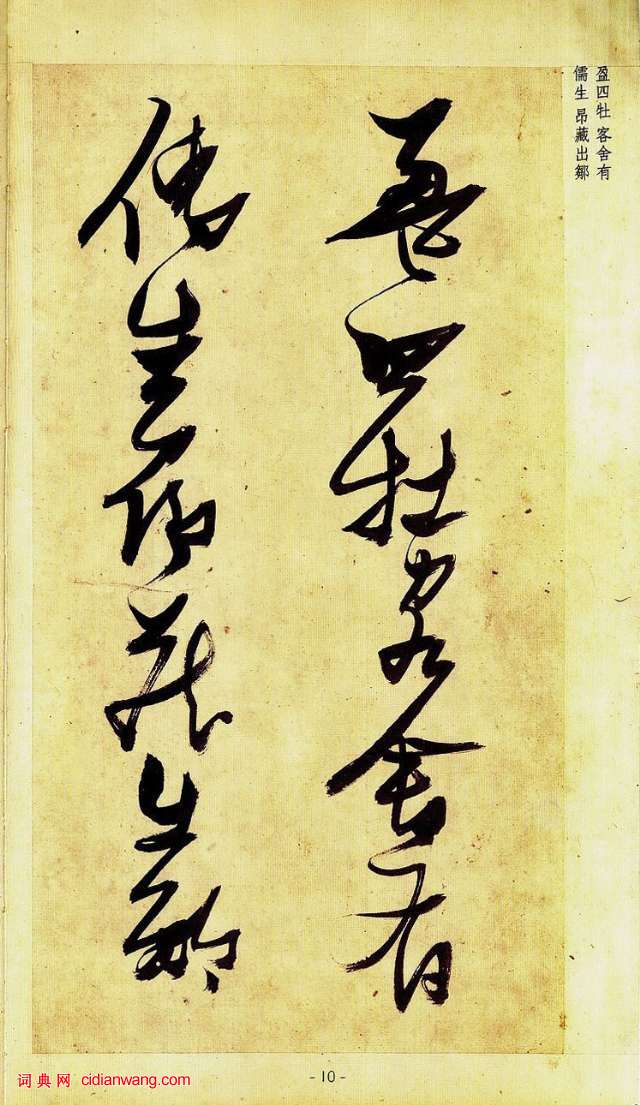 盈四牡 客舍有
儒生 昂藏出鄒
盈四牡客舍有
儒生昂藏出鄒
- 10 -
词典网 cidianwang.com